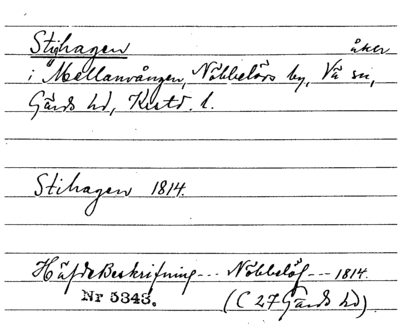 Stighagen åker
i Mellanvången, Nöbbelövs by, Vä sn,
Gärds hd, Kristd. l.
Stihagen 1814.
HäfdeBeskrifning --- Nöbbelöf --- 1814.
Nr 5343. (C 27 Gärds hd).